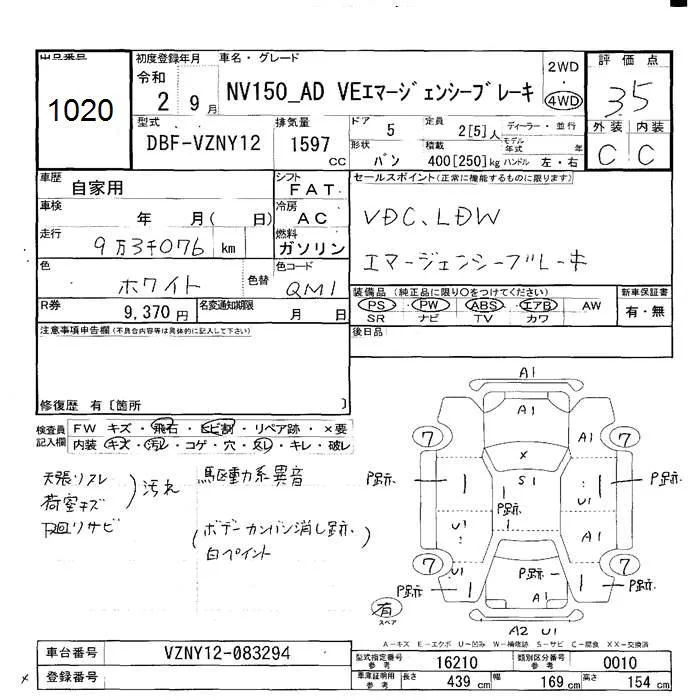 出品番号
1020
初度登録年月
令和
2 9月
車名・グレード
NV150_AD VEエマージェンシーブレーキ
2WD
・
4WD
評価点
35
外装 内装
C C
型式
DBF-VZNY12
排気量
1597
CC
ドア 5
定員 2[5]人
ディーラー・並行
形状 バン
積載 400[250]kg
モデル年式 年
ハンドル 左・右
車歴
自家用
シフト
FAT
車検
年 月( 日)
冷房
AC
走行
9万3千076 km
燃料
ガソリン
色
ホワイト
色替
色コード
QM1
R券
9,370円
名変通知期限
月 日
セールスポイント(正常に機能するものに限ります)
VDC、LDW
エマージェンシーブレーキ
装備品(純正品に限り○をつけてください)
PS PW ABS エアB AW
SR ナビ TV カワ
新車保証書
有・無
後日品
注意事項申告欄(不具合内容等は具体的に記入して下さい)
修復歴 有〔箇所 〕
検査員
記入欄
FW キズ・飛石・ヒビ割・リペア跡・×要
内装 キズ・汚れ・コゲ・穴・スレ・キレ・破レ
天張リスレ
荷室キズ
下廻リサビ
)汚れ
駆動系異音
(ボデーカンバン消し跡、
白ペイント
A1
A1
7 7
X
P跡 S1 P跡
P跡
U1
U1 A1
7 7
U1 P跡
P跡 A1 P跡
有
スペア
A2 U1
A-キズ E-エクボ U-凹み W-補修跡 S-サビ C-腐食 XX-交換済
車台番号
VZNY12-083294
登録番号
型式指定番号
参考
16210
類別区分番号
参考
0010
車庫証明用
参考
長さ 439 cm 幅 169 cm 高さ 154 cm